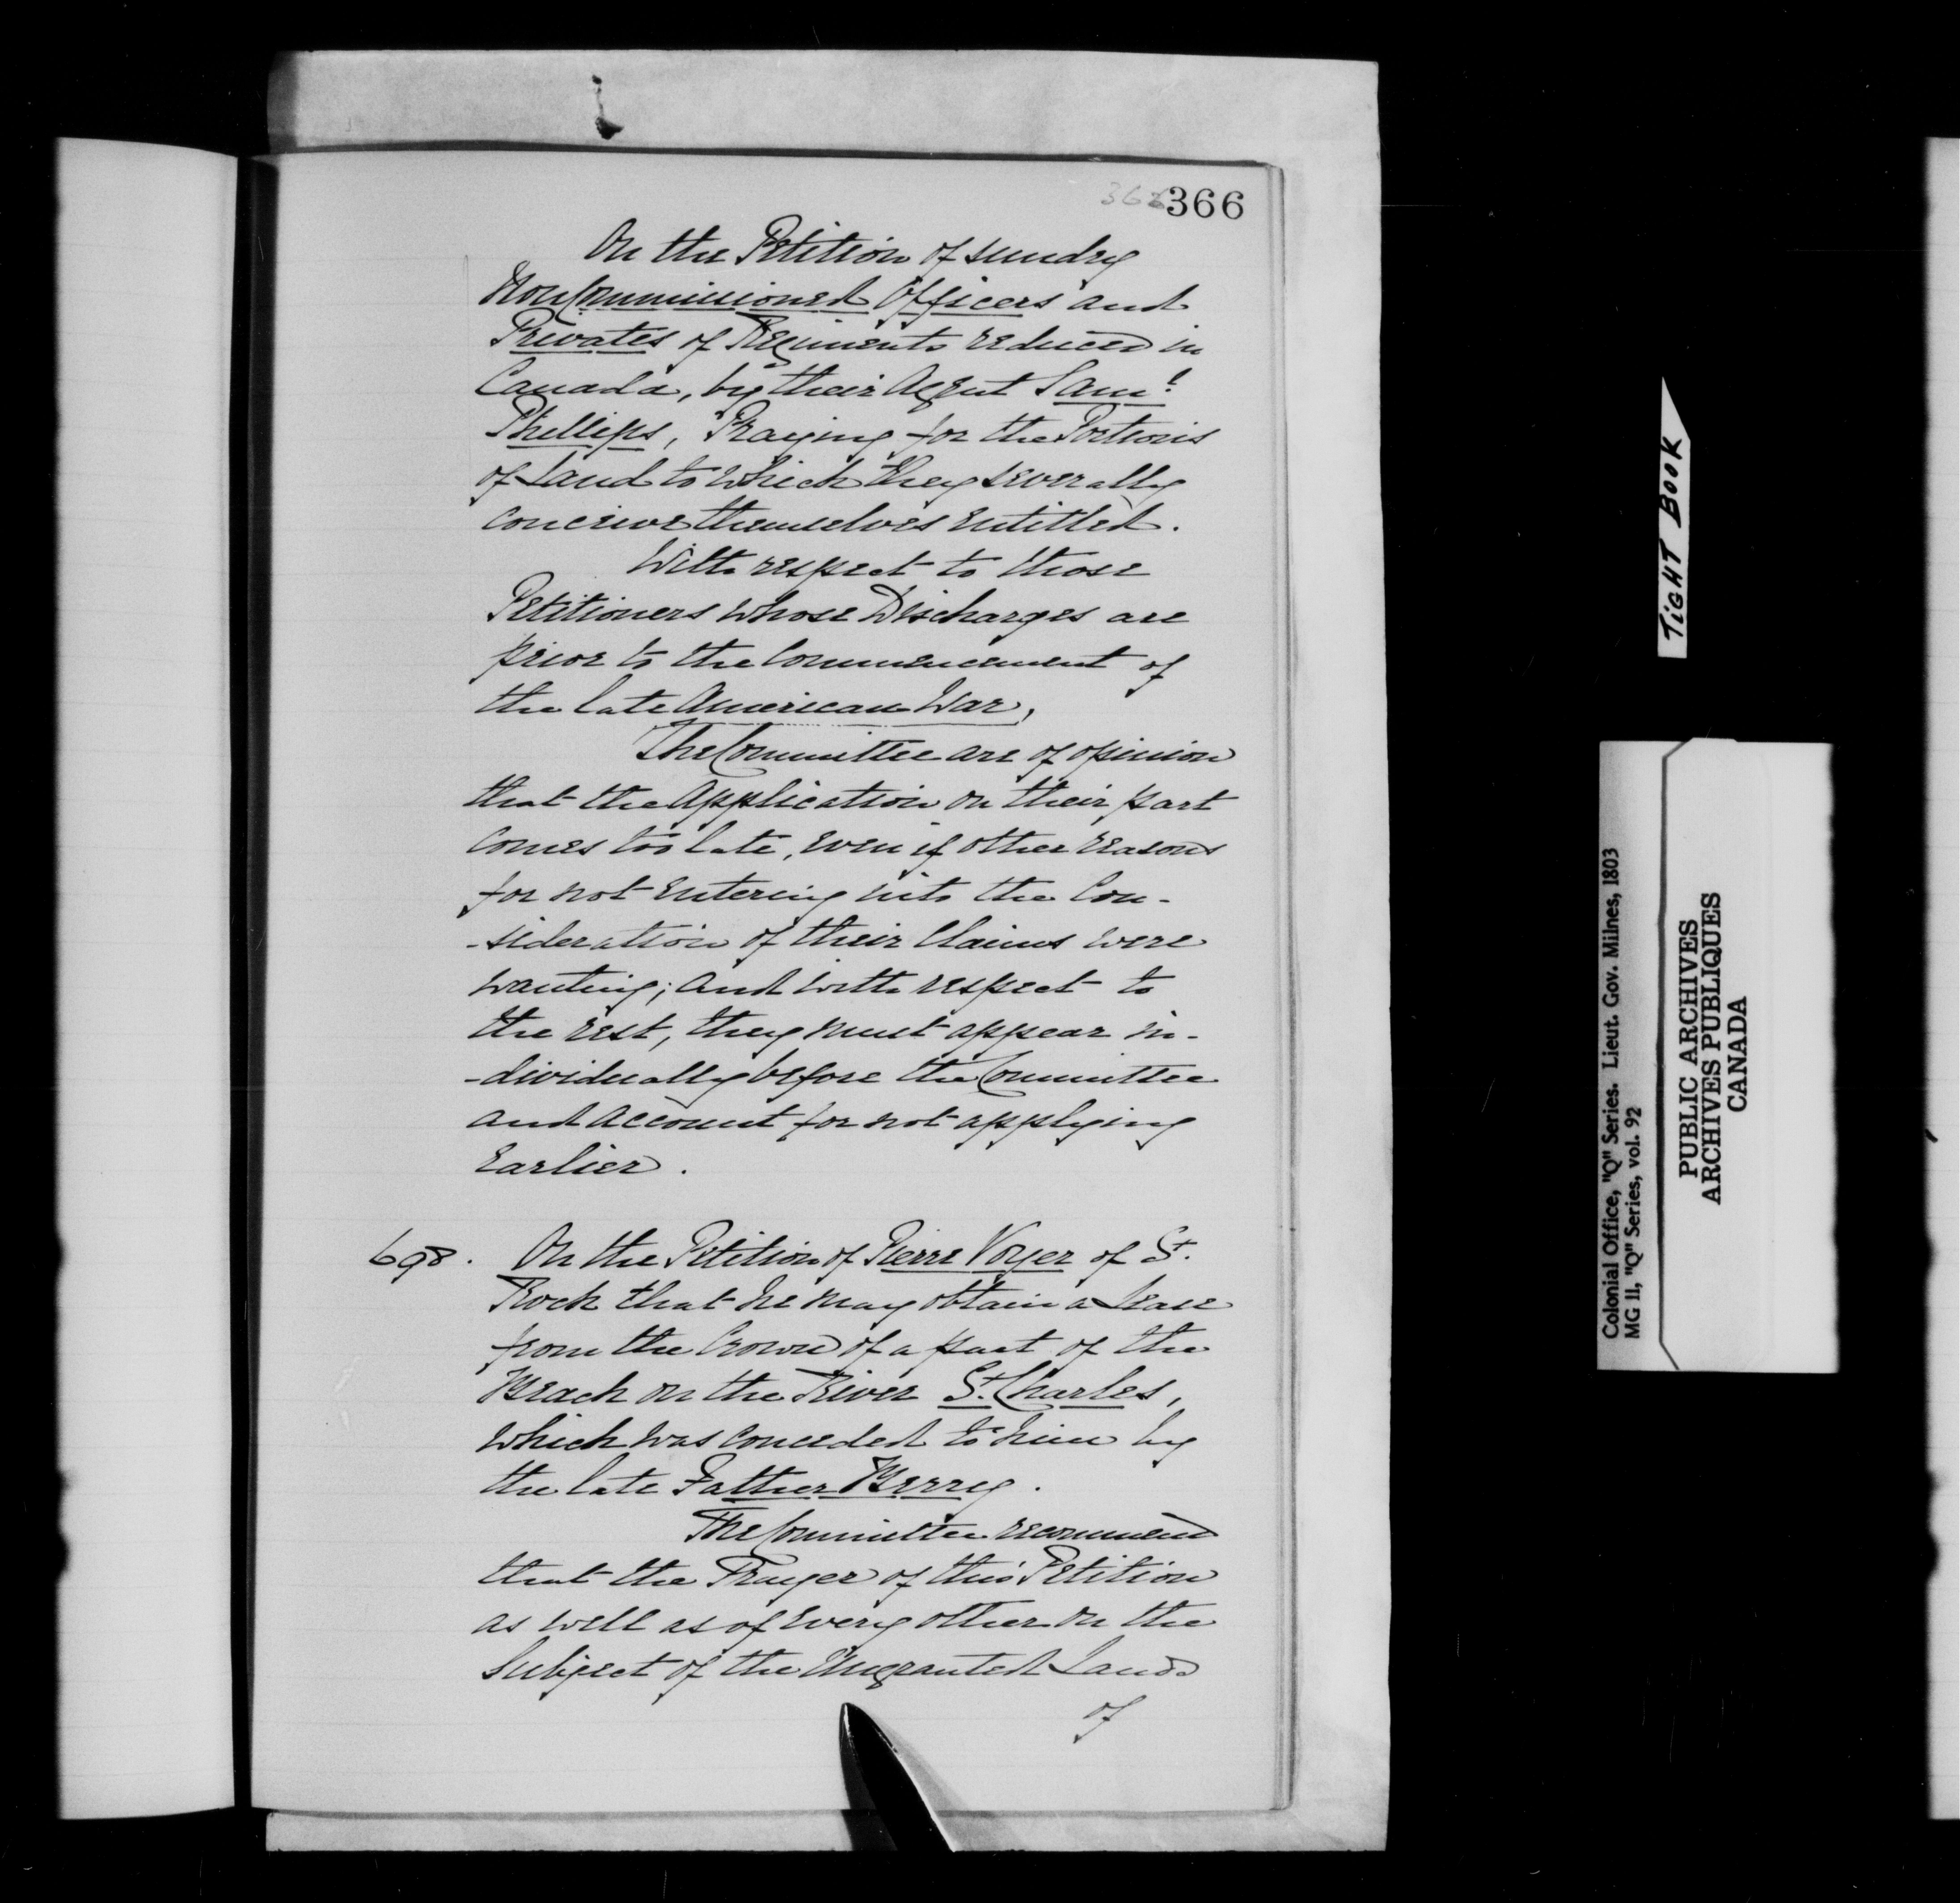 366
On the Petition of sundry
Non Commissioned Officers and
Privates of Regiments reduced in
Canada, by their Agent Saml
Phillips, Praying for the Portions
of Land to which they severally
conceive themselves entitled.
With respect to those
Petitioners whose Discharges are
prior to the Commencement of
the late American War,
The Committee are of opinion
that the Application on their part
Comes too late, even if other reasons
for not entering into the Con-
-sideration of their Claims were
wanting; and with respect to
the rest, they must appear in-
-dividually before the Committee
and account for not applying
Earlier.
698. On the Petition of Pierre Voyer of St.
Rock that he may obtain a Lease
from the Crown of a part of the
Beach on the River St. Charles,
which was conceded to him by
the late Father Berrey.
The Committee recommend
that the Prayer of this Petition
as well as of every other on the
Subject of the Ungranted Lands
of
TIGHT BOOK
Colonial Office, "Q" Series. Lieut. Gov. Milnes, 1803
MG 11, "Q" Series, vol. 92
PUBLIC ARCHIVES
ARCHIVES PUBLIQUES
CANADA